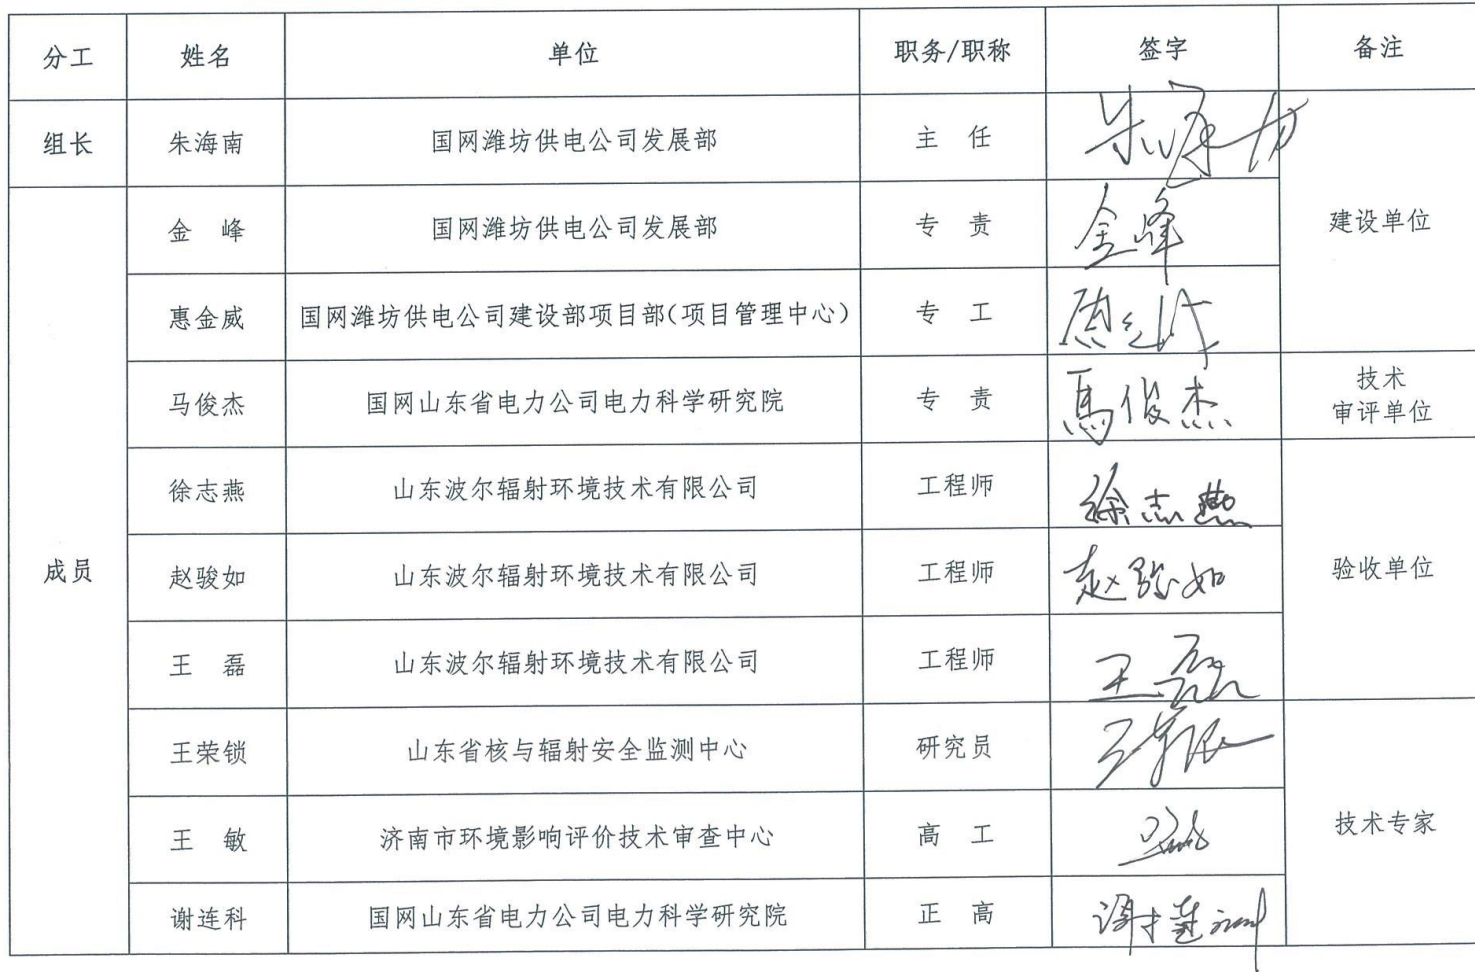 分工 姓名 单位 职务/职称 签字 备注
组长 朱海南 国网潍坊供电公司发展部 主 任
金 峰 国网潍坊供电公司发展部 专 责 金峰 建设单位
惠金威 国网潍坊供电公司建设部项目部(项目管理中心) 专 工
马俊杰 国网山东省电力公司电力科学研究院 专 责 馬俊杰 技术
审评单位
徐志燕 山东波尔辐射环境技术有限公司 工程师 徐志燕
成员 赵骏如 山东波尔辐射环境技术有限公司 工程师 赵骏如 验收单位
王 磊 山东波尔辐射环境技术有限公司 工程师 王磊
王荣锁 山东省核与辐射安全监测中心 研究员
王 敏 济南市环境影响评价技术审查中心 高 工 技术专家
谢连科 国网山东省电力公司电力科学研究院 正 高 谢连科